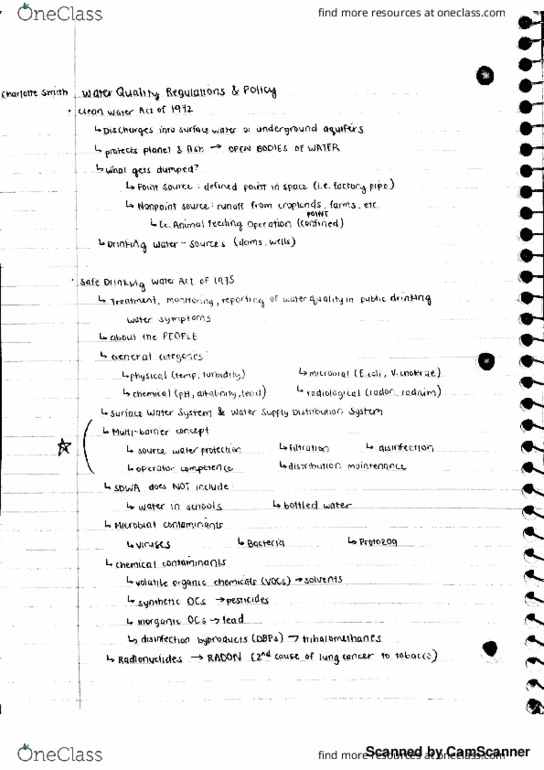 OneClass
find more resources at oneclass.com
Charlotte Smith Water Quality Regulations & Policy
• Clean Water Act of 1972
↳ Discharges into surface water or underground aquifers
↳ protects planet & fish → OPEN BODIES OF WATER
↳ what gets dumped?
↳ Point source: defined point in space (i.e. factory pipe)
↳ Nonpoint source: runoff from croplands, farms, etc.
POINT
↳ Ex. Animal Feeding Operation (confined)
↳ Drinking water - sources (dams, wells)
• Safe Drinking Water Act of 1975
↳ Treatment, monitoring, reporting of water quality in public drinking
water symptoms
↳ about the PEOPLE
↳ General categories:
↳ physical (temp, turbidity) ↳ microbial (E.coli, V.cholerae)
↳ chemical (pH, alkalinity, lead) ↳ radiological (radon, radium)
↳ Surface Water System & Water Supply Distribution System
↳ Multi-barrier concept
↳ source water protection ↳ filtration ↳ disinfection
↳ operator competence ↳ distribution maintenance
↳ SDWA does NOT include:
↳ water in schools ↳ bottled water
↳ Microbial contaminants
↳ Viruses ↳ Bacteria ↳ Protozoa
↳ chemical contaminants
↳ volatile organic chemicals (VOCs) → solvents
↳ synthetic OCs → pesticides
↳ inorganic OCs → lead
↳ disinfection byproducts (DBPs) → trihalomethanes
↳ Radionuclides → RADON (2nd cause of lung cancer to tobacco)
Scanned by CamScanner
OneClass
find more resources at oneclass.com